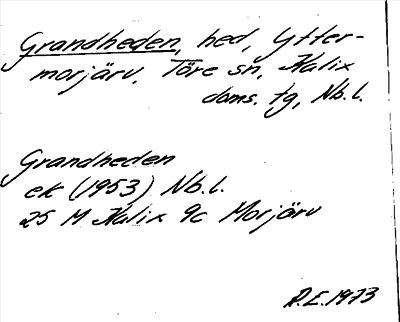 Grandheden, hed, Ytter-
morjärv, Töre sn, Kalix
doms. tg, Nb. l.
Grandheden
ek (1953) Nb. l.
25 M Kalix 9c Morjärv
R.E. 1973